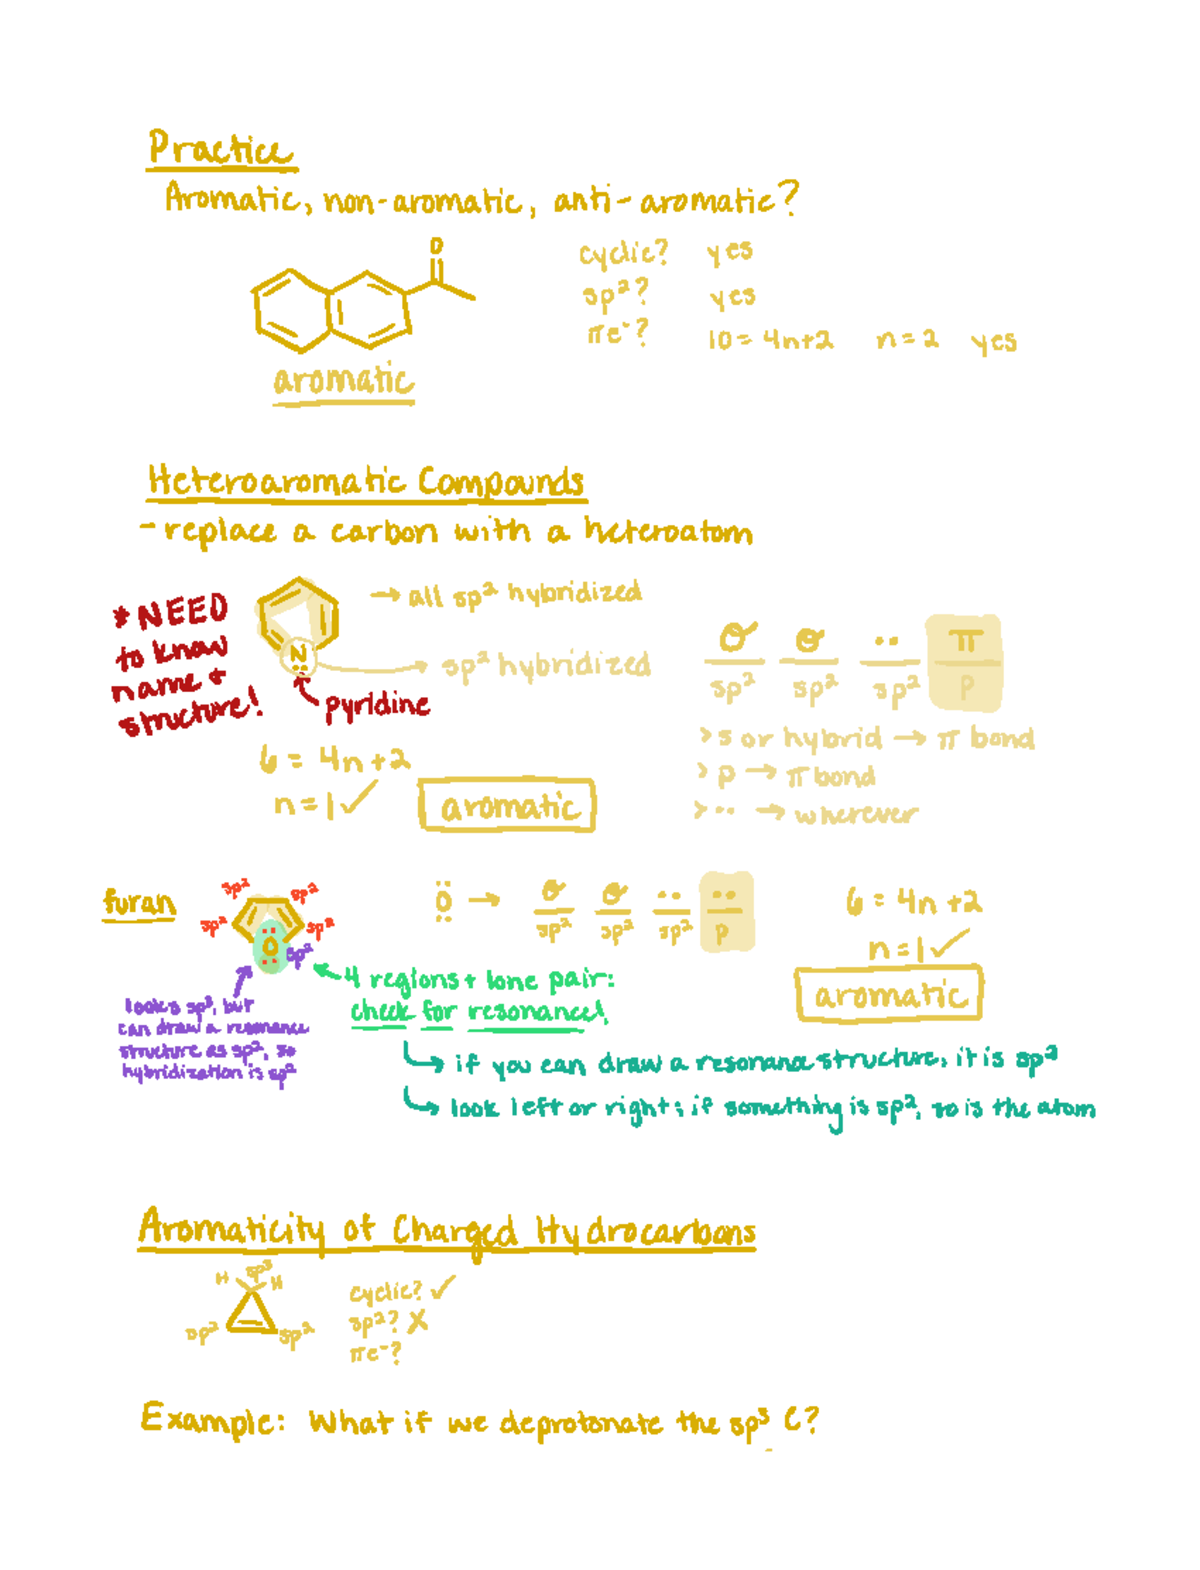 Practice
Aromatic, non-aromatic, anti-aromatic?
O
cyclic? yes
sp²? yes
πe⁻? 10 = 4n+2 n = 2 yes
aromatic
Heteroaromatic Compounds
- replace a carbon with a heteroatom
* NEED
to know
name +
structure!
N
→ all sp² hybridized
→ sp² hybridized
pyridine
σ σ ·· π
sp² sp² sp² p
> s or hybrid → π bond
> p → π bond
> ·· → wherever
6 = 4n+2
n = 1 ✓
aromatic
furan
sp² sp²
sp² sp²
O sp²
looks sp³, but
can draw a resonance
structure as sp², so
hybridization is sp²
4 regions + lone pair:
check for resonance!
O → σ σ ·· ··
sp² sp² sp² p
6 = 4n+2
n = 1 ✓
aromatic
↳ if you can draw a resonance structure, it is sp²
↳ look left or right; if something is sp², so is the atom
Aromaticity of Charged Hydrocarbons
H sp³ H
sp² sp²
cyclic? ✓
sp²? X
πe⁻?
Example: What if we deprotonate the sp³ C?